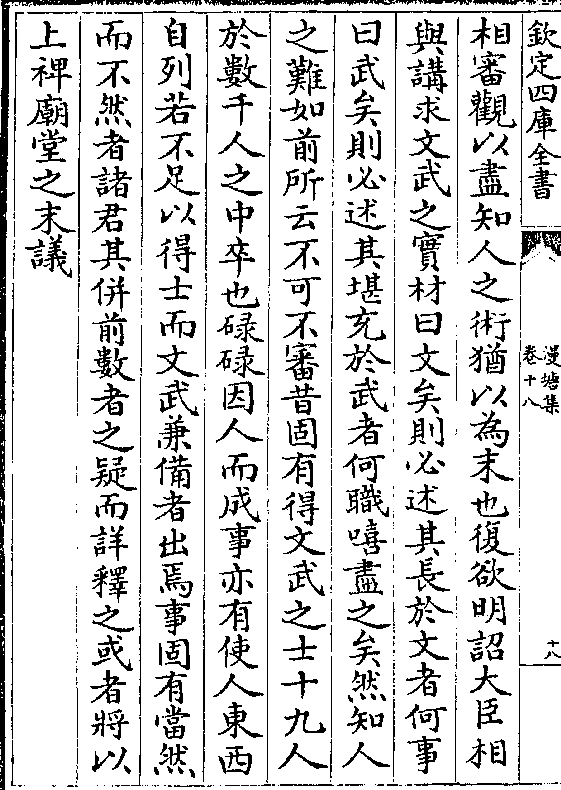 欽定四庫全書
漫塘集
卷十八
十八
相審觀以盡知人之術猶以為末也復欲明詔大臣相
與講求文武之實材曰文矣則必述其長於文者何事
曰武矣則必述其堪充於武者何職嘻盡之矣然知人
之難如前所云不可不審昔固有得文武之士十九人
於數千人之中卒也碌碌因人而成事亦有使人東西
自列若不足以得士而文武兼備者出焉事固有當然
而不然者諸君其併前數者之疑而詳釋之或者將以
上裨廟堂之末議